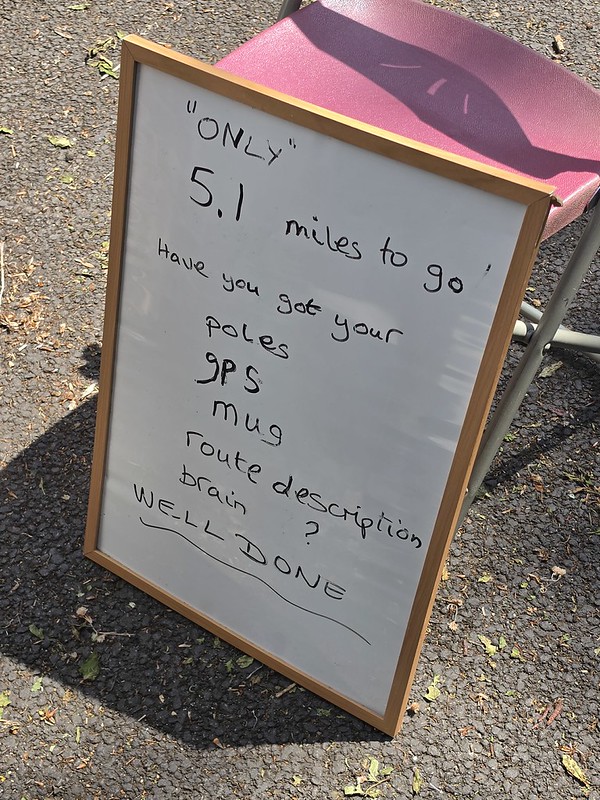 "ONLY"
5.1 miles to go
Have you got your
poles
gps
mug
route description
brain ?
WELL DONE